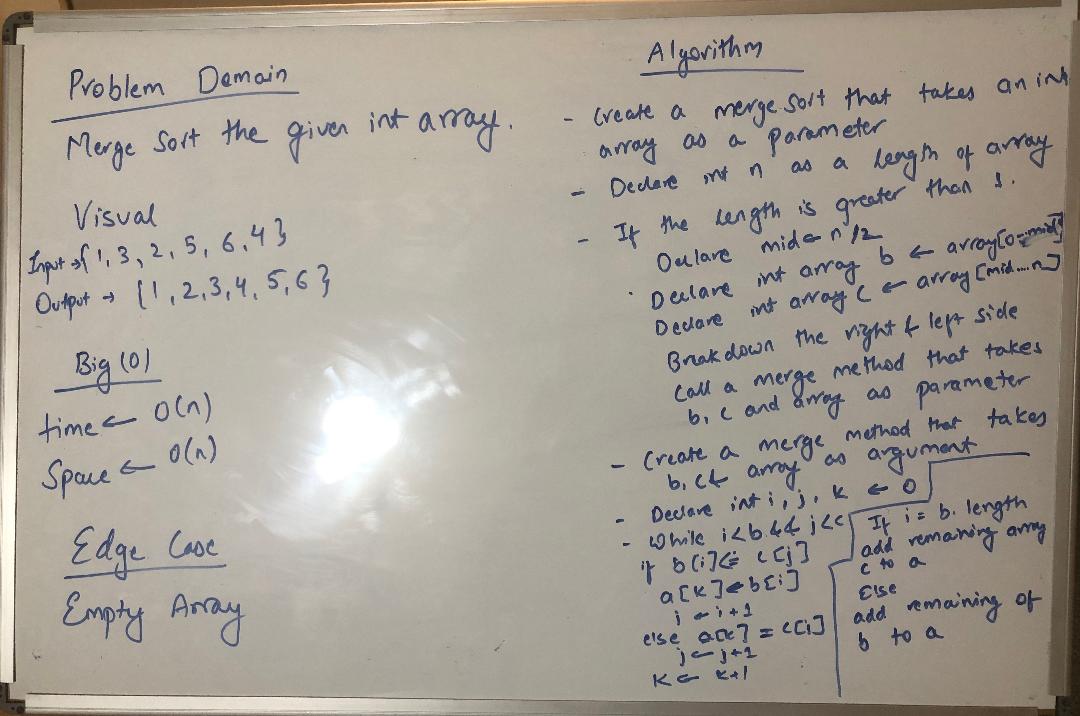 Problem Domain
Merge Sort the given int array.
Visual
Input → { 1, 3, 2, 5, 6, 4 }
Output → { 1, 2, 3, 4, 5, 6 }
Big (O)
time ← O(n)
Space ← O(n)
Edge Case
Empty Array
Algorithm
- Create a merge sort that takes an int
array as a parameter
- Declare int n as a length of array
- If the length is greater than 1.
Declare mid ← n/2
Declare int array b ← array[0...mid]
Declare int array c ← array [mid....n]
Breakdown the right & left side
Call a merge method that takes
b, c and array as parameter
- Create a merge method that takes
b, c & array as argument
- Declare int i, j, k ← 0
- While i<b && j<c
if b[i] <= c[j]
a[k] ← b[i]
i ← i+1
else a[k] = c[i]
j ← j+1
k ← k+1
If i = b. length
add remaining array
c to a
Else
add remaining of
b to a